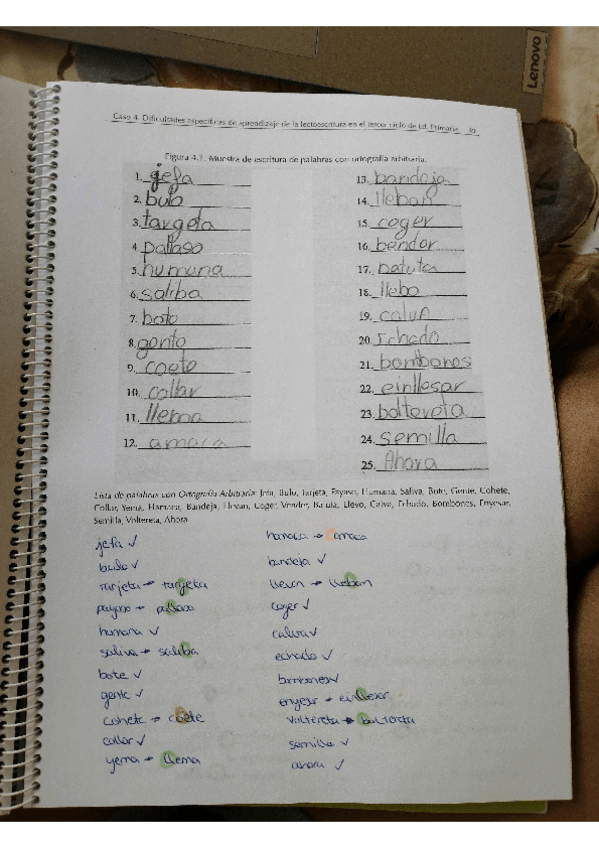 Lenovo
Caso 4. Dificultades específicas de aprendizaje de la lectoescritura en el tercer ciclo de Ed. Primaria
Figura 4.1. Muestra de escritura de palabras con ortografía arbitraria.
1. jefa
2. bulo
3. targeta
4. pallaso
5. humana
6. saliba
7. bote
8. gente
9. coete
10. collar
11. llema
12. amaca
13. bandeja
14. lleban
15. coger
16. bender
17. batuta
18. llebo
19. calva
20. Echado
21. bombones
22. einllesar
23. boltereta
24. semilla
25. Ahora
Lista de palabras con Ortografía Arbitraria: Jefa, Bulo, Tarjeta, Payaso, Humana, Saliva, Bote, Gente, Cohete,
Collar, Yema, Hamaca, Bandeja, Llevan, Coger, Vender, Batuta, Llevo, Calva, Echado, Bombones, Enyesar,
Semilla, Voltereta, Ahora
jefa ✓
bulo ✓
Tarjeta → targeta
payaso → pallaso
humana ✓
saliva → saliba
bote ✓
gente ✓
cohete → coete
collar ✓
yema → llema
hamaca → amaca
bandeja ✓
llevan → lleban
coger ✓
calva ✓
echado ✓
bombones ✓
enyesar → einllesar
voltereta → boltereta
semilla ✓
ahora ✓